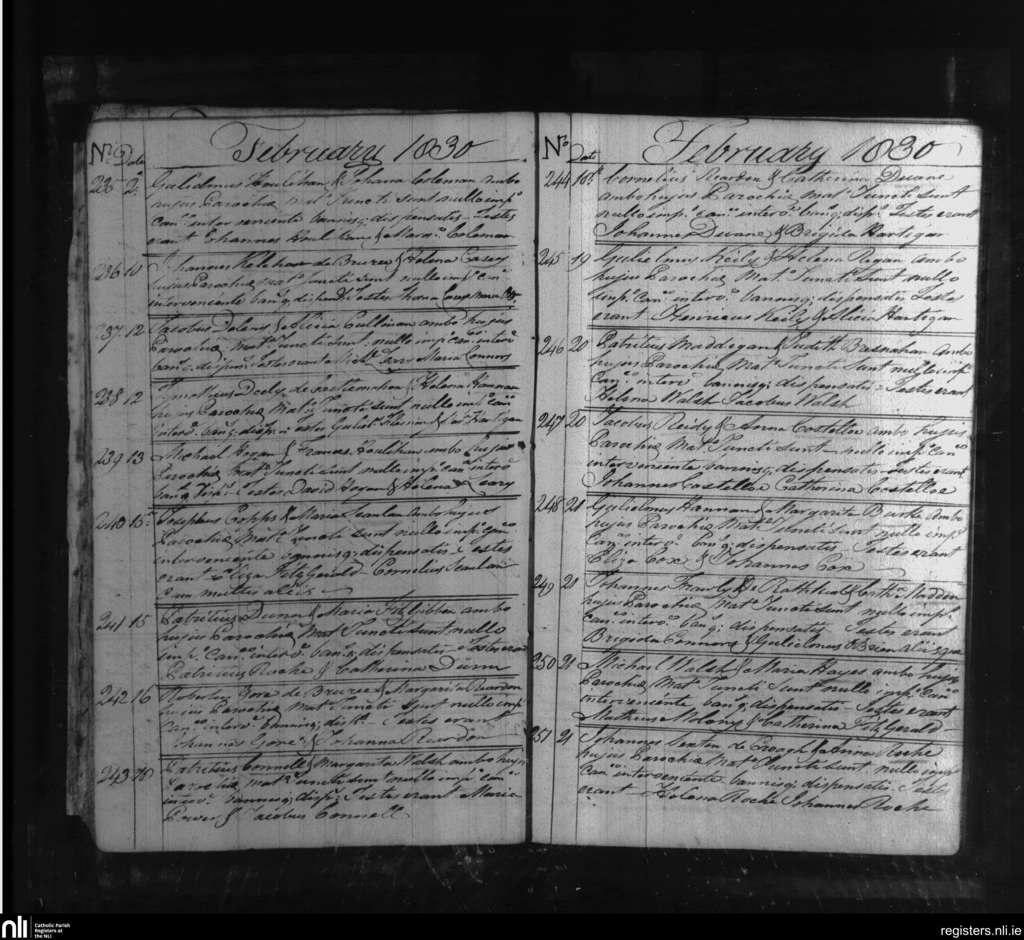 No. Date February 1830
235 2d Gulielmus Houlihan & Johana Coleman ambo
hujus Parochiæ Mat. Juncti sunt nullo impo.
Cano. interveniente bannisq; dispensatis. Testes
erant Johannes Houlihan & Coleman
236 10 Johannes Kelehar de Bruree & Helena Casey
hujus Parochiæ Mato. Juncti sunt nullo impo. cano.
interveniente banq; dispen. Testes Thoma
237 12 Jacobus & Alicia Cullinan ambo hujus
Parochiæ Mato. Juncti sunt nullo impo. Cano. intervo.
banq; dispens. Testes erant Michl. & Maria Connors
238 12 Timotheus Daly de & Helena Hannan
hujus Parochiæ Mato. Juncti sunt nullo impo. cano.
intervo. banq; disp. Testes Guliel. & Hartigan
239 13 Michael Hogan & Frances Houlihan ambo hujus
Parochiæ Mato. Juncti sunt nullo impo. cano. intervo.
banq. disp. Testes David Hogan & Helena Leary
240 15 Josephus Copps & Maria Scanlan ambo hujus
Parochiæ Mato. Juncti sunt nullo impo. cano.
interveniente bannisq; dispensatis. Testes
erant Eliza FitzGerald Cornelius Scanlan
cum multis aliis
241 15 Patritius Dunn & Maria Fitzgibbon ambo
hujus Parochiæ Mato. Juncti sunt nullo
impo. Cano. intervo. banq; dispensatis. Testes erant
Patricius Roche & Catherina Dunn
242 16 Robertus Gore de Bruree & Margarita Reardon
hujus Parochiæ Mato. Juncti sunt nullo impo.
cano. intervo. bannisq; dis. Testes erant
Johannes Gore & Johanna Reardon
243 Patritius Connell & Margarita Walsh ambo hujus
Parochiæ Mato. Juncti sunt nullo impo. cano.
intervo. bannisq; disp. Testes erant Maria
Power & Jacobus Connell
No. Date February 1830
244 Cornelius Reardon & Catherina Dwane
ambo hujus Parochiæ Mato. Juncti sunt
nullo impo. cano. intervo. banq; disp. Testes erant
Johannes Dwane & Brigida Hartigan
245 19 Gulielmus Keily & Helena Regan ambo
hujus Parochiæ Mato. Juncti sunt nullo
impo. Cano. intervo. bannisq; dispensatis Testes
erant Henricus Keily & Alicia Hartigan
246 20 Patritius Maddigan & Judith Bresnahan ambo
hujus Parochiæ Mato. Juncti sunt nullo impo.
Cano. intervo. bannisq; dispensatis Testes erant
Helena Walsh Jacobus Walsh
247 20 Jacobus Reidy & Anna Costelloe ambo hujus
Parochiæ Mato. Juncti sunt nullo impo. Cano.
interveniente bannisq; dispensatis Testes erant
Johannes Costelloe Catherina Costelloe
248 21 Gulielmus Hannan & Margarita Burke ambo
hujus Parochiæ Mato. Juncti sunt nullo impo.
Cano. intervo. banq; dispensatis. Testes erant
Eliza Cox & Johannes Cox
249 21 Johannes Frawly de Rathkeal & Cath. Madden
hujus Parochiæ Mato. Juncti sunt nullo impo.
cano. intervo. banq; dispensatis. Testes erant
Brigida Connors & Gulielmus OBrien
250 21 Michael Walsh & Maria Hayes ambo hujus
Parochiæ Mato. Juncti sunt nullo impo. Cano.
interveniente banq; dispensatis. Testes erant
Matheus Molony & Catherina FitzGerald
251 21 Johannes Sexton de Croagh & Anna Roche
hujus Parochiæ Mato. Juncti sunt nullo impo.
Cano. interveniente bannisq; dispensatis. Testes
erant Helena Roche Johannes Roche
nli
Catholic Parish
Registers at
the NLI
registers.nli.ie